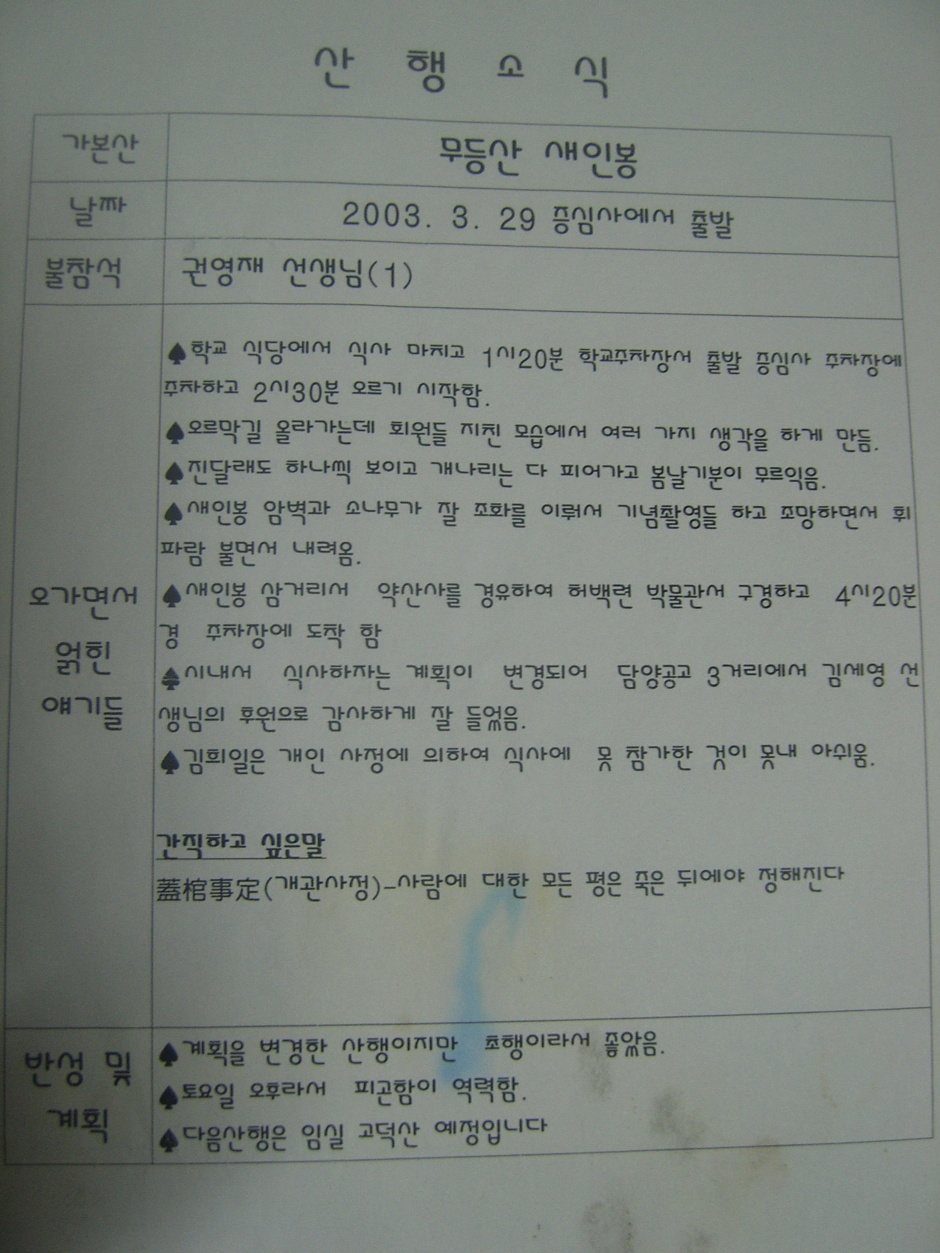 산 행 소 식
가본산 무등산 새인봉
날짜 2003. 3. 29 증심사에서 출발
불참석 권영재 선생님(1)
♠학교 식당에서 식사 마치고 1시20분 학교주차장서 출발 증심사 주차장에
주차하고 2시30분 오르기 시작함.
♠오르막길 올라가는데 회원들 지친 모습에서 여러 가지 생각을 하게 만듬.
♠진달래도 하나씩 보이고 개나리는 다 피어가고 봄날기분이 무르익음.
♠새인봉 암벽과 소나무가 잘 조화를 이뤄서 기념촬영들 하고 조망하면서 휘
파람 불면서 내려옴.
오가면서
얽힌
얘기들
♠새인봉 삼거리서 약산사를 경유하여 허백련 박물관서 구경하고 4시20분
경 주차장에 도착 함
♠시내서 식사하자는 계획이 변경되어 담양공고 3거리에서 김세영 선
생님의 후원으로 감사하게 잘 들었음.
♠김희일은 개인 사정에 의하여 식사에 못 참가한 것이 못내 아쉬움.
간직하고 싶은말
蓋棺事定(개관사정)-사람에 대한 모든 평은 죽은 뒤에야 정해진다
반성 및
계획
♠계획을 변경한 산행이지만 초행이라서 좋았음.
♠토요일 오후라서 피곤함이 역력함.
♠다음산행은 임실 고덕산 예정입니다